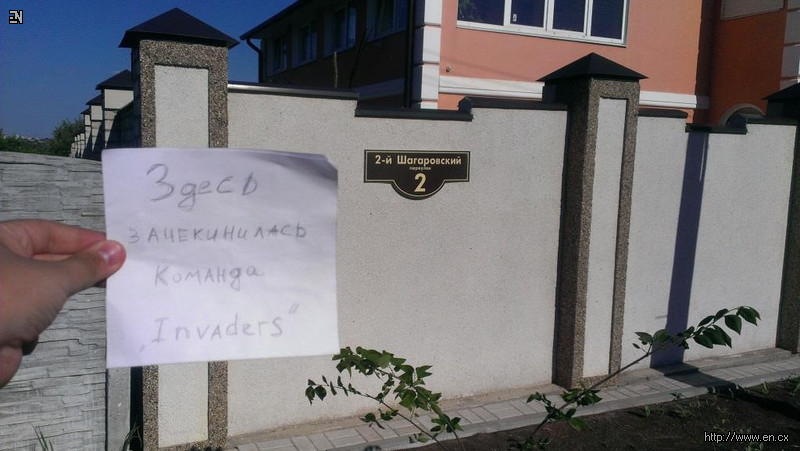 EN
Здесь
зачекинилась
Команда
„Invaders“
2-й Шагаровский
переулок
2
http://www.en.cx